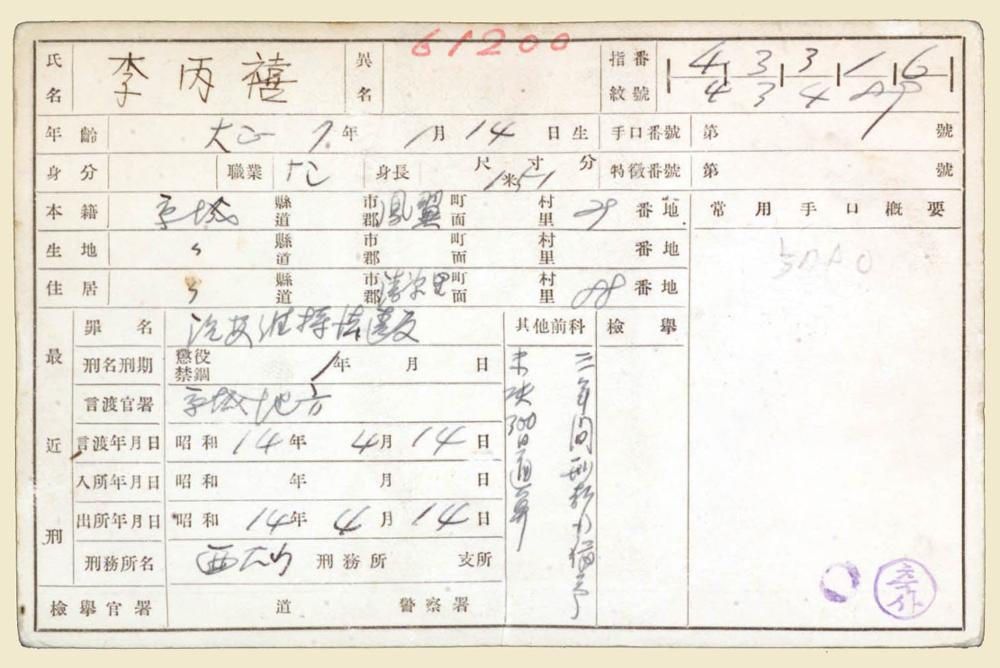 61200
氏名 李丙禧 異名 指紋番號 4 3 3 1 6
4 3 4
年齡 大正 7年 1月 14日生 手口番號 第 號
身分 職業 身長 尺寸分 1米51 特徵番號 第 號
本籍 京城 縣道 市郡 鳳翼 町面 村里 29 番地 常用手口概要
生地 〃 縣道 市郡 町面 村里 番地
住居 〃 縣道 市郡 町面 村里 88 番地
最近刑
罪名 治安維持法違反 其他前科 檢擧
刑名刑期 懲役 禁錮 1年 月 日
言渡官署 京城地方
言渡年月日 昭和 14年 4月 14日
入所年月日 昭和 年 月 日
出所年月日 昭和 14年 4月 14日
刑務所名 西大門 刑務所 支所
三年間刑執行猶予
未決300日通算
檢擧官署 道 警察署